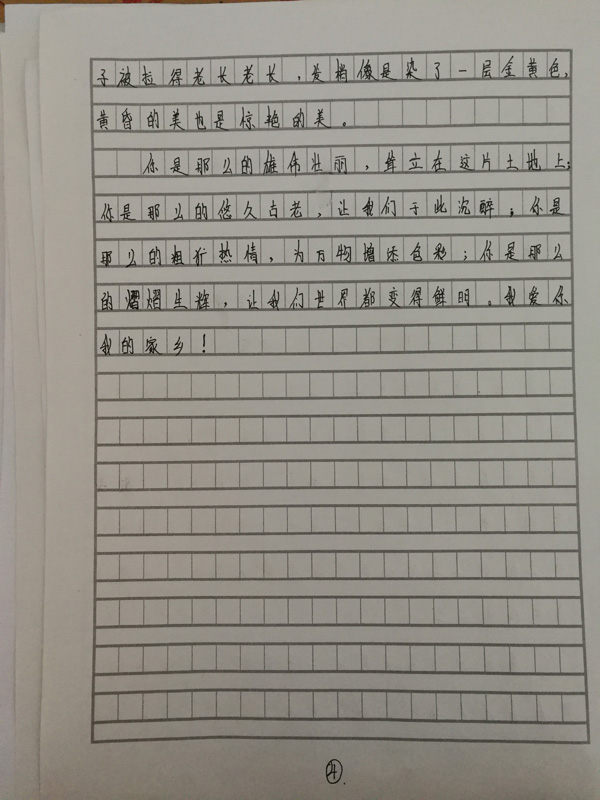 子被拉得老长老长，发梢像是染了一层金黄色，
黄昏的美也是惊艳的美。
你是那么的雄伟壮丽，耸立在这片土地上；
你是那么的悠久古老，让我们于此沉醉；你是
那么的粗犷热情，为万物增添色彩；你是那么
的熠熠生辉，让我们世界都变得鲜明。我爱你
我的家乡！
④